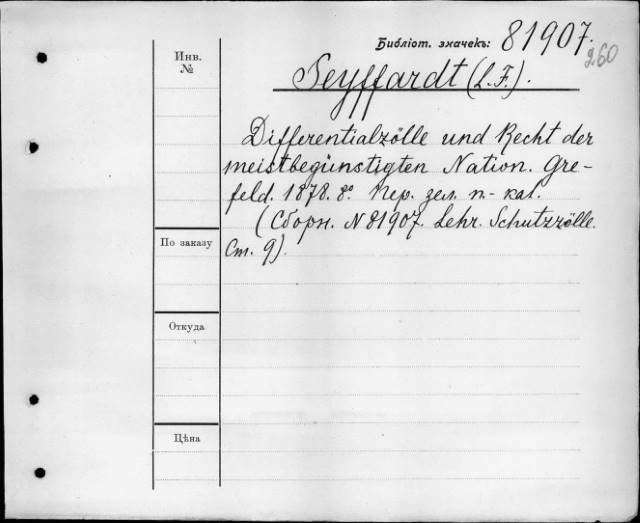 Библіот. значекъ: 81907.
260
Инв.
№
Seyffardt (L. F.).
Differentialzölle und Recht der
meistbegünstigten Nation. Cre-
feld. 1878. 8º Пер. зел. п.- кал.
(Сборн. N 81907. Lehr. Schutzzölle.
Ст. 9).
По заказу
Откуда
Цѣна